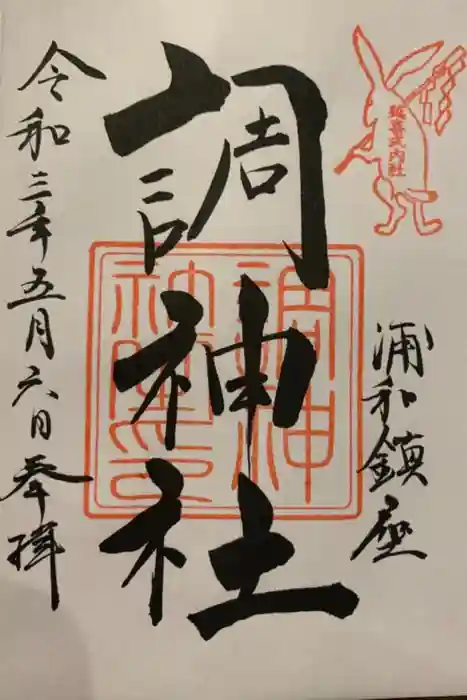 延喜式内社
浦和鎮座
調神社
令和三年五月六日奉拝